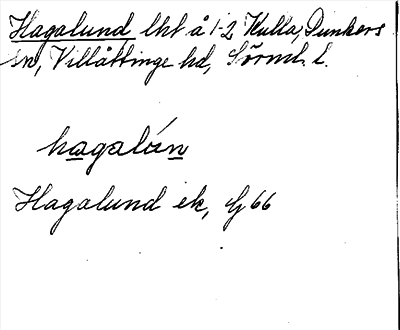 Hagalund lht å 1-2 Kulla, Dunkers
sn, Villåttinge hd, Sörml. l.
hagalún
Hagalund ek, G 66